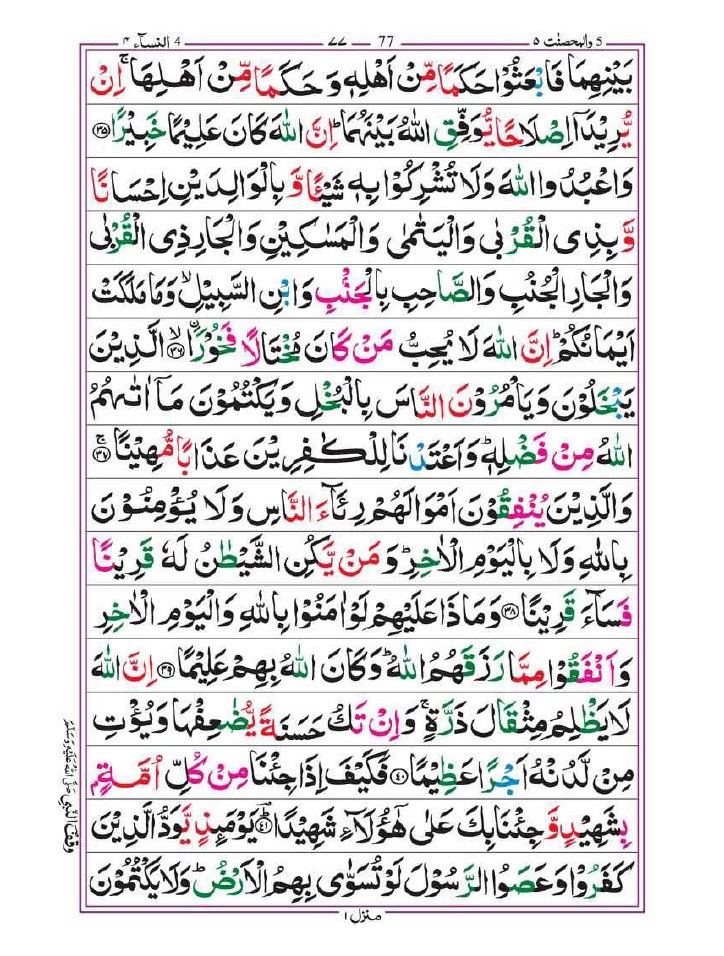 5 والمحصنت ۵
77 ۷۷
4 النسآء ۴
بَيْنِهِمَا فَابْعَثُوْا حَكَمًا مِّنْ اَهْلِهٖ وَ حَكَمًا مِّنْ اَهْلِهَا ۚ اِنْ
يُّرِيْدَاۤ اِصْلَاحًا يُّوَفِّقِ اللّٰهُ بَيْنَهُمَا ؕ اِنَّ اللّٰهَ كَانَ عَلِيْمًا خَبِيْرًا ۝۳۵
وَاعْبُدُوا اللّٰهَ وَلَا تُشْرِكُوْا بِهٖ شَيْـًٔا وَّ بِالْوَالِدَيْنِ اِحْسَانًا
وَّ بِذِی الْقُرْبٰی وَالْيَتٰمٰی وَالْمَسٰكِيْنِ وَالْجَارِ ذِی الْقُرْبٰی
وَالْجَارِ الْجُنُبِ وَالصَّاحِبِ بِالْجَنْۢبِ وَابْنِ السَّبِيْلِ ۙ وَمَا مَلَكَتْ
اَيْمَانُكُمْ ؕ اِنَّ اللّٰهَ لَا يُحِبُّ مَنْ كَانَ مُخْتَالًا فَخُوْرًا ۝۳۶ ۙ الَّذِيْنَ
يَبْخَلُوْنَ وَيَاْمُرُوْنَ النَّاسَ بِالْبُخْلِ وَيَكْتُمُوْنَ مَاۤ اٰتٰىهُمُ
اللّٰهُ مِنْ فَضْلِهٖ ؕ وَاَعْتَدْنَا لِلْكٰفِرِيْنَ عَذَابًا مُّهِيْنًا ۝۳۷ ۚ
وَالَّذِيْنَ يُنْفِقُوْنَ اَمْوَالَهُمْ رِئَآءَ النَّاسِ وَلَا يُؤْمِنُوْنَ
بِاللّٰهِ وَلَا بِالْيَوْمِ الْاٰخِرِ ؕ وَ مَنْ يَّكُنِ الشَّيْطٰنُ لَهٗ قَرِيْنًا
فَسَآءَ قَرِيْنًا ۝۳۸ وَمَاذَا عَلَيْهِمْ لَوْ اٰمَنُوْا بِاللّٰهِ وَالْيَوْمِ الْاٰخِرِ
وَاَنْفَقُوْا مِمَّا رَزَقَهُمُ اللّٰهُ ؕ وَكَانَ اللّٰهُ بِهِمْ عَلِيْمًا ۝۳۹ اِنَّ اللّٰهَ
لَا يَظْلِمُ مِثْقَالَ ذَرَّةٍ ۚ وَاِنْ تَكُ حَسَنَةً يُّضٰعِفْهَا وَيُؤْتِ
مِنْ لَّدُنْهُ اَجْرًا عَظِيْمًا ۝۴۰ فَكَيْفَ اِذَا جِئْنَا مِنْ كُلِّ اُمَّةٍۭ
بِشَهِيْدٍ وَّ جِئْنَا بِكَ عَلٰی هٰۤؤُلَآءِ شَهِيْدًا ۝۴۱ ؕ يَوْمَىِٕذٍ يَّوَدُّ الَّذِيْنَ
كَفَرُوْا وَعَصَوُا الرَّسُوْلَ لَوْ تُسَوّٰی بِهِمُ الْاَرْضُ ؕ وَلَا يَكْتُمُوْنَ
وقف النبی صَلَّی اللّٰهُ عَلَيْهِ وَسَلَّمَ
منزل ۱